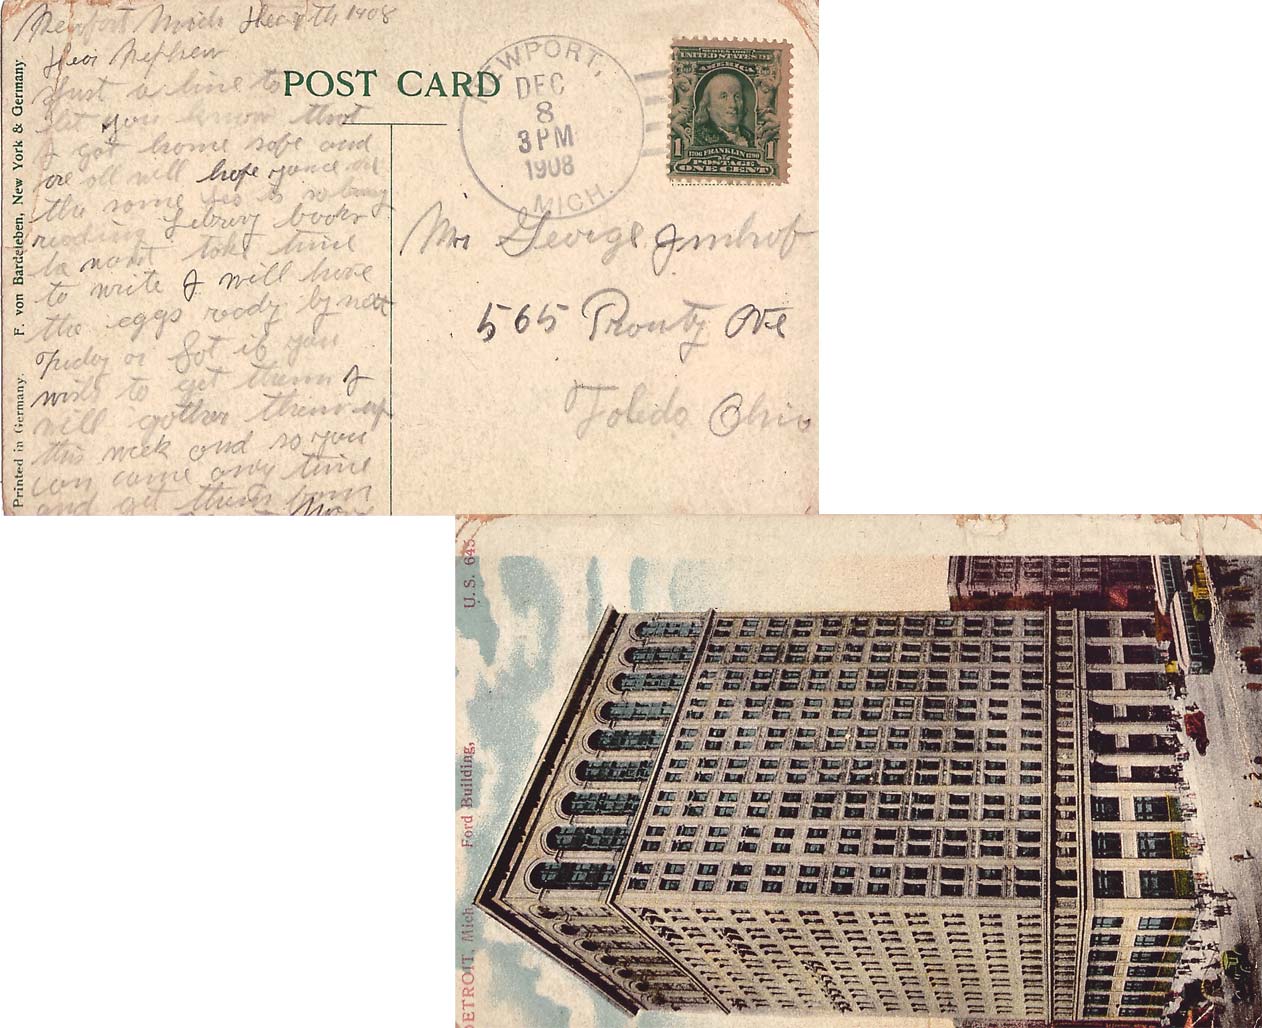 Newport Mich Dec 8th 1908
Dear Nephew
Just a line to
let you know that
I got home safe and
are all well hope you are all
the some Leo is so busy
reading Library books
he wont take time
to write I will have
the eggs ready by next
Friday or Sat if you
wish to get them I
will gather them up
this week and so you
can come any time
and get them from
POST CARD
NEWPORT,
DEC
8
3 PM
1908
MICH.
UNITED STATES OF
AMERICA
1706 FRANKLIN 1790
1 POSTAGE 1
ONE CENT
Mr George Imhof
565 Prouty Ave
Toledo Ohio
Printed in Germany. F. von Bardeleben, New York & Germany
DETROIT, Mich. Ford Building, U. S. 645.